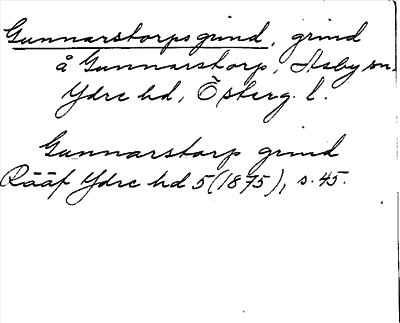 Gunnarstorpsgrind, grind
å Gunnarstorp, Asby sn.
Ydre hd, Österg. l.
Gunnarstorp grind
Rääf Ydre hd 5 (1875), s. 45.